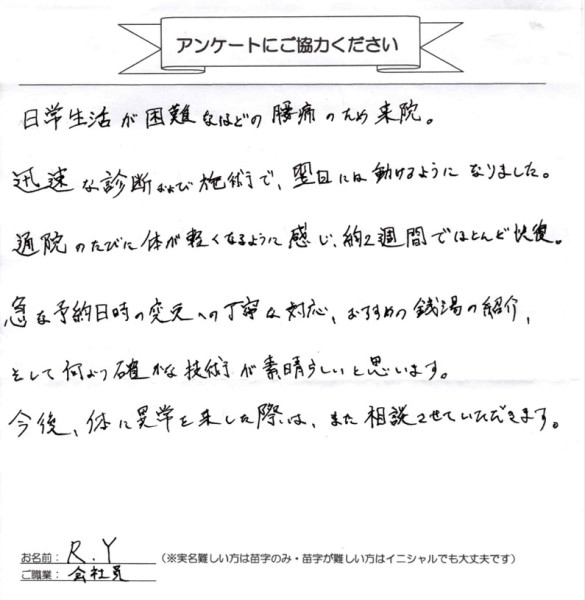 アンケートにご協力ください
日常生活が困難なほどの腰痛のため来院。
迅速な診断および施術で、翌日には動けるようになりました。
通院のたびに体が軽くなるように感じ、約2週間でほとんど快復。
急な予約日時の変更への丁寧な対応、おすすめの銭湯の紹介、
そして何より確かな技術が素晴らしいと思います。
今後、体に異常を来した際は、また相談させていただきます。
お名前： R.Y （※実名難しい方は苗字のみ・苗字が難しい方はイニシャルでも大丈夫です）
ご職業： 会社員